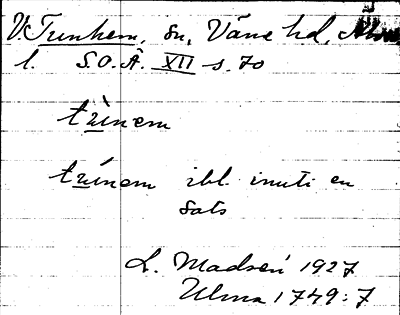 V. Tunhem, sn, Väne hd,
l. S.O.Ä. XII s. 70
trìnem
trínem ibl. inuti en
sats
L. Madsen 1927
Ulma 1749:7